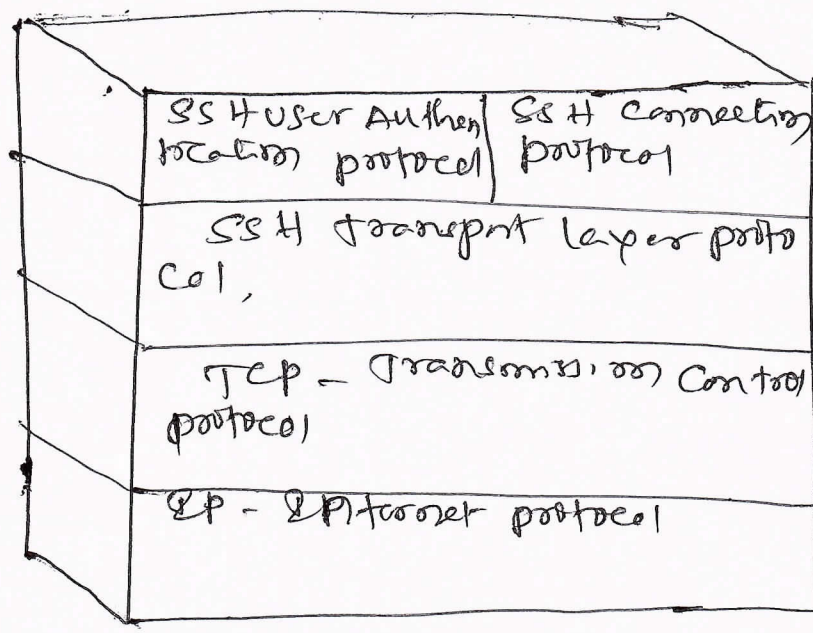 SSH User Authen
tication protocol
SSH Connection
protocol
SSH Transport layer proto
col,
TCP - Transmission Control
protocol
IP - Internet protocol